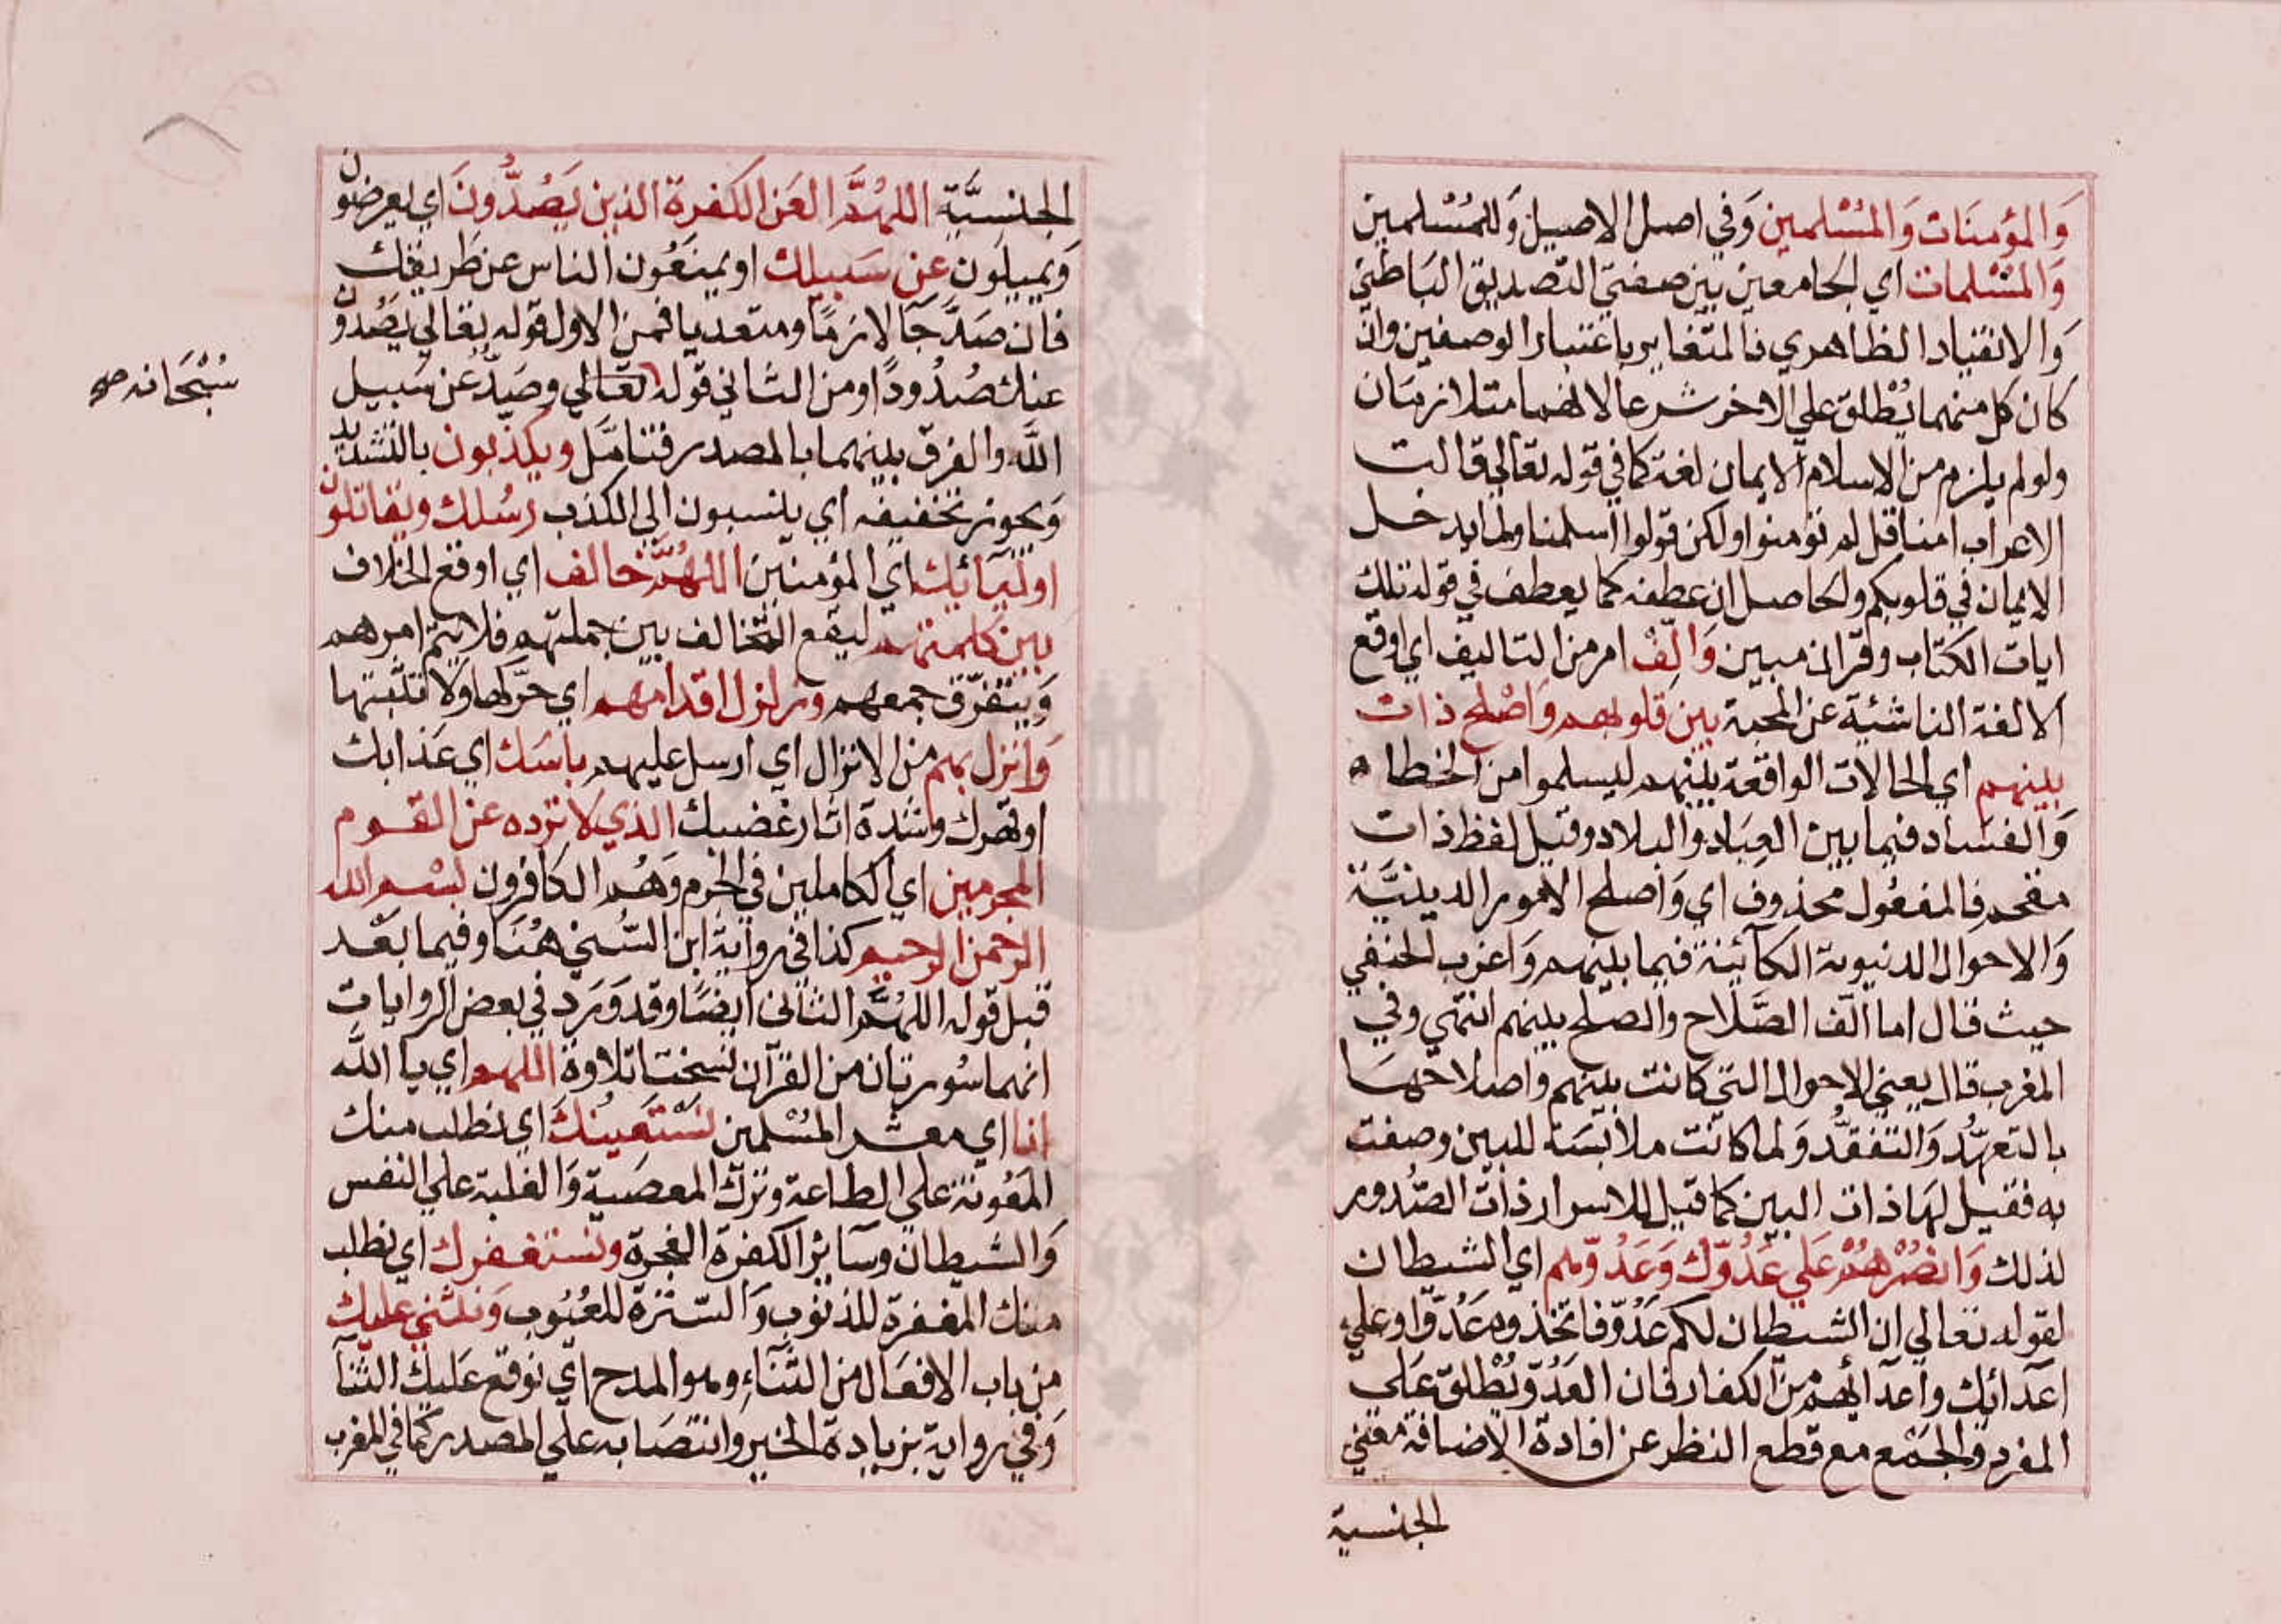 وَالمؤمنَات وَالمُسْلمين وَفي اصل الاصيل وَللمُسْلمين
وَالمسْلمات اي الجامعين بين صفتي التصديق البَاطني
وَالانقياد الظاهري فالمتغاير باعتبار الوصفين وان
كان كل منهما يُطْلق علي الاخر شرعا لانهما متلازمَان
ولو لم يلزم من الاسلام الايمان لغة كما في قوله تعالي قالت
الاعراب امنا قل لم تؤمنوا ولكن قولوا اسلمنا ولما يدخل
الايمان في قلوبكم والحاصل ان عطفه كما يعطف في قوله تلك
ايات الكتاب وقران مبين وَالِّفْ امر من التاليف اي اوقع
الالفة الناشئة عن المحبة بين قلوبهم وَاصْلح ذات
بينهم اي الحالات الواقعة بينهم ليسلموا من الخطاء
وَالفسَاد فيما بين العِبَاد والبلاد وقيل لفظ ذات
مقحم فالمفعُول محذوف اي وَاصلح الامور الدينيَّة
وَالاحوال الدنيوية الكآئنة فيما بينهم وَاغرب الحنفي
حيث قال اما الف الصَّلاح والصلح بينهم انتهي وفي
المغرب قال يعني الاحوال التي كانت بينهم واصلاحهَا
بالتعهّد وَالتفقّد وَلما كانت ملابسَة للبين وصفت
به فقيل لهَا ذات البين كما قيل للاسرار ذات الصّدور
لذلك وَانصُرْهُمْ عَلي عَدُوّك وَعَدُوّهم اي الشيطان
لقوله تعالي ان الشيطان لكم عَدُوّ فاتخذوه عَدُوّا وعلي
اعدآئك واعدآئهم من الكفار فان العَدُوّ يُطْلق عَلي
المفرد والجَمْع مع قطع النظر عن افادة الاضافة معني
الجنسية
الجنسيَّة اللهُمَّ العَن الكفرة الذين يَصُدُّونَ اي يعرضون
وَيميلون عن سَبيلك او يمنَعُون الناس عن طَريقك
فان صَدّ جَآ لازمًا ومتعديا فمن الاول قوله تعالي يَصُدّون
عنك صُدُودًا ومن الثاني قوله تعَالي وصَدٌّ عَن سَبيل
سُبْحَانه صح
اللَّه والفرق بينهما بالمصدر فتامَّل ويكذّبون بالتشديد
وَيجوز تخفيفه اي ينسبون الي الكذب رسُلك ويقاتلون
اوليَآئك اي المؤمنين اللهُمَّ خالف اي اوقع الخلاف
بين كلمتهم ليقع التخالف بين جملتهم فلا يتم امرهم
وَيتفرّق جمعهم وزلزل اقدامهم اي حرّكها وَلا تثبتها
وَانزل بهم من الانزال اي ارسل عليهم باسَك اي عَذابك
او قهرك وشدة اثار غضبك الذي لا تردّه عن القوم
المجرمين اي الكاملين في الجرم وَهُم الكافرون بسْم الله
الرّحمن الرحيم كذا في رواية ابن السُّني هُنَا وفيما بعْد
قبل قوله اللهُمَّ الثاني ايضًا وقد وَرَد في بعض الروايات
انهما سُورتان من القرآن نسخت تلاوة اللهم اي يا اللَّه
انا اي معشر المسْلمين نَسْتَعِينُكَ اي نطلب منك
المَعُونة علي الطاعة وترك المعصية وَالغلبة علي النفس
وَالشيطان وسآئر الكفرة الفجرة ونستغفرك اي نطلب
منك المغفرة للذنوب وَالسّترة للعُيُوب وَنثني عليك
من باب الافعَال من الثَّنَاء وهو المدح اي نوقع عَليك الثنآ
وَفي رواية بزيادة الخير وانتصَابه علي المصدر كما في المغرب